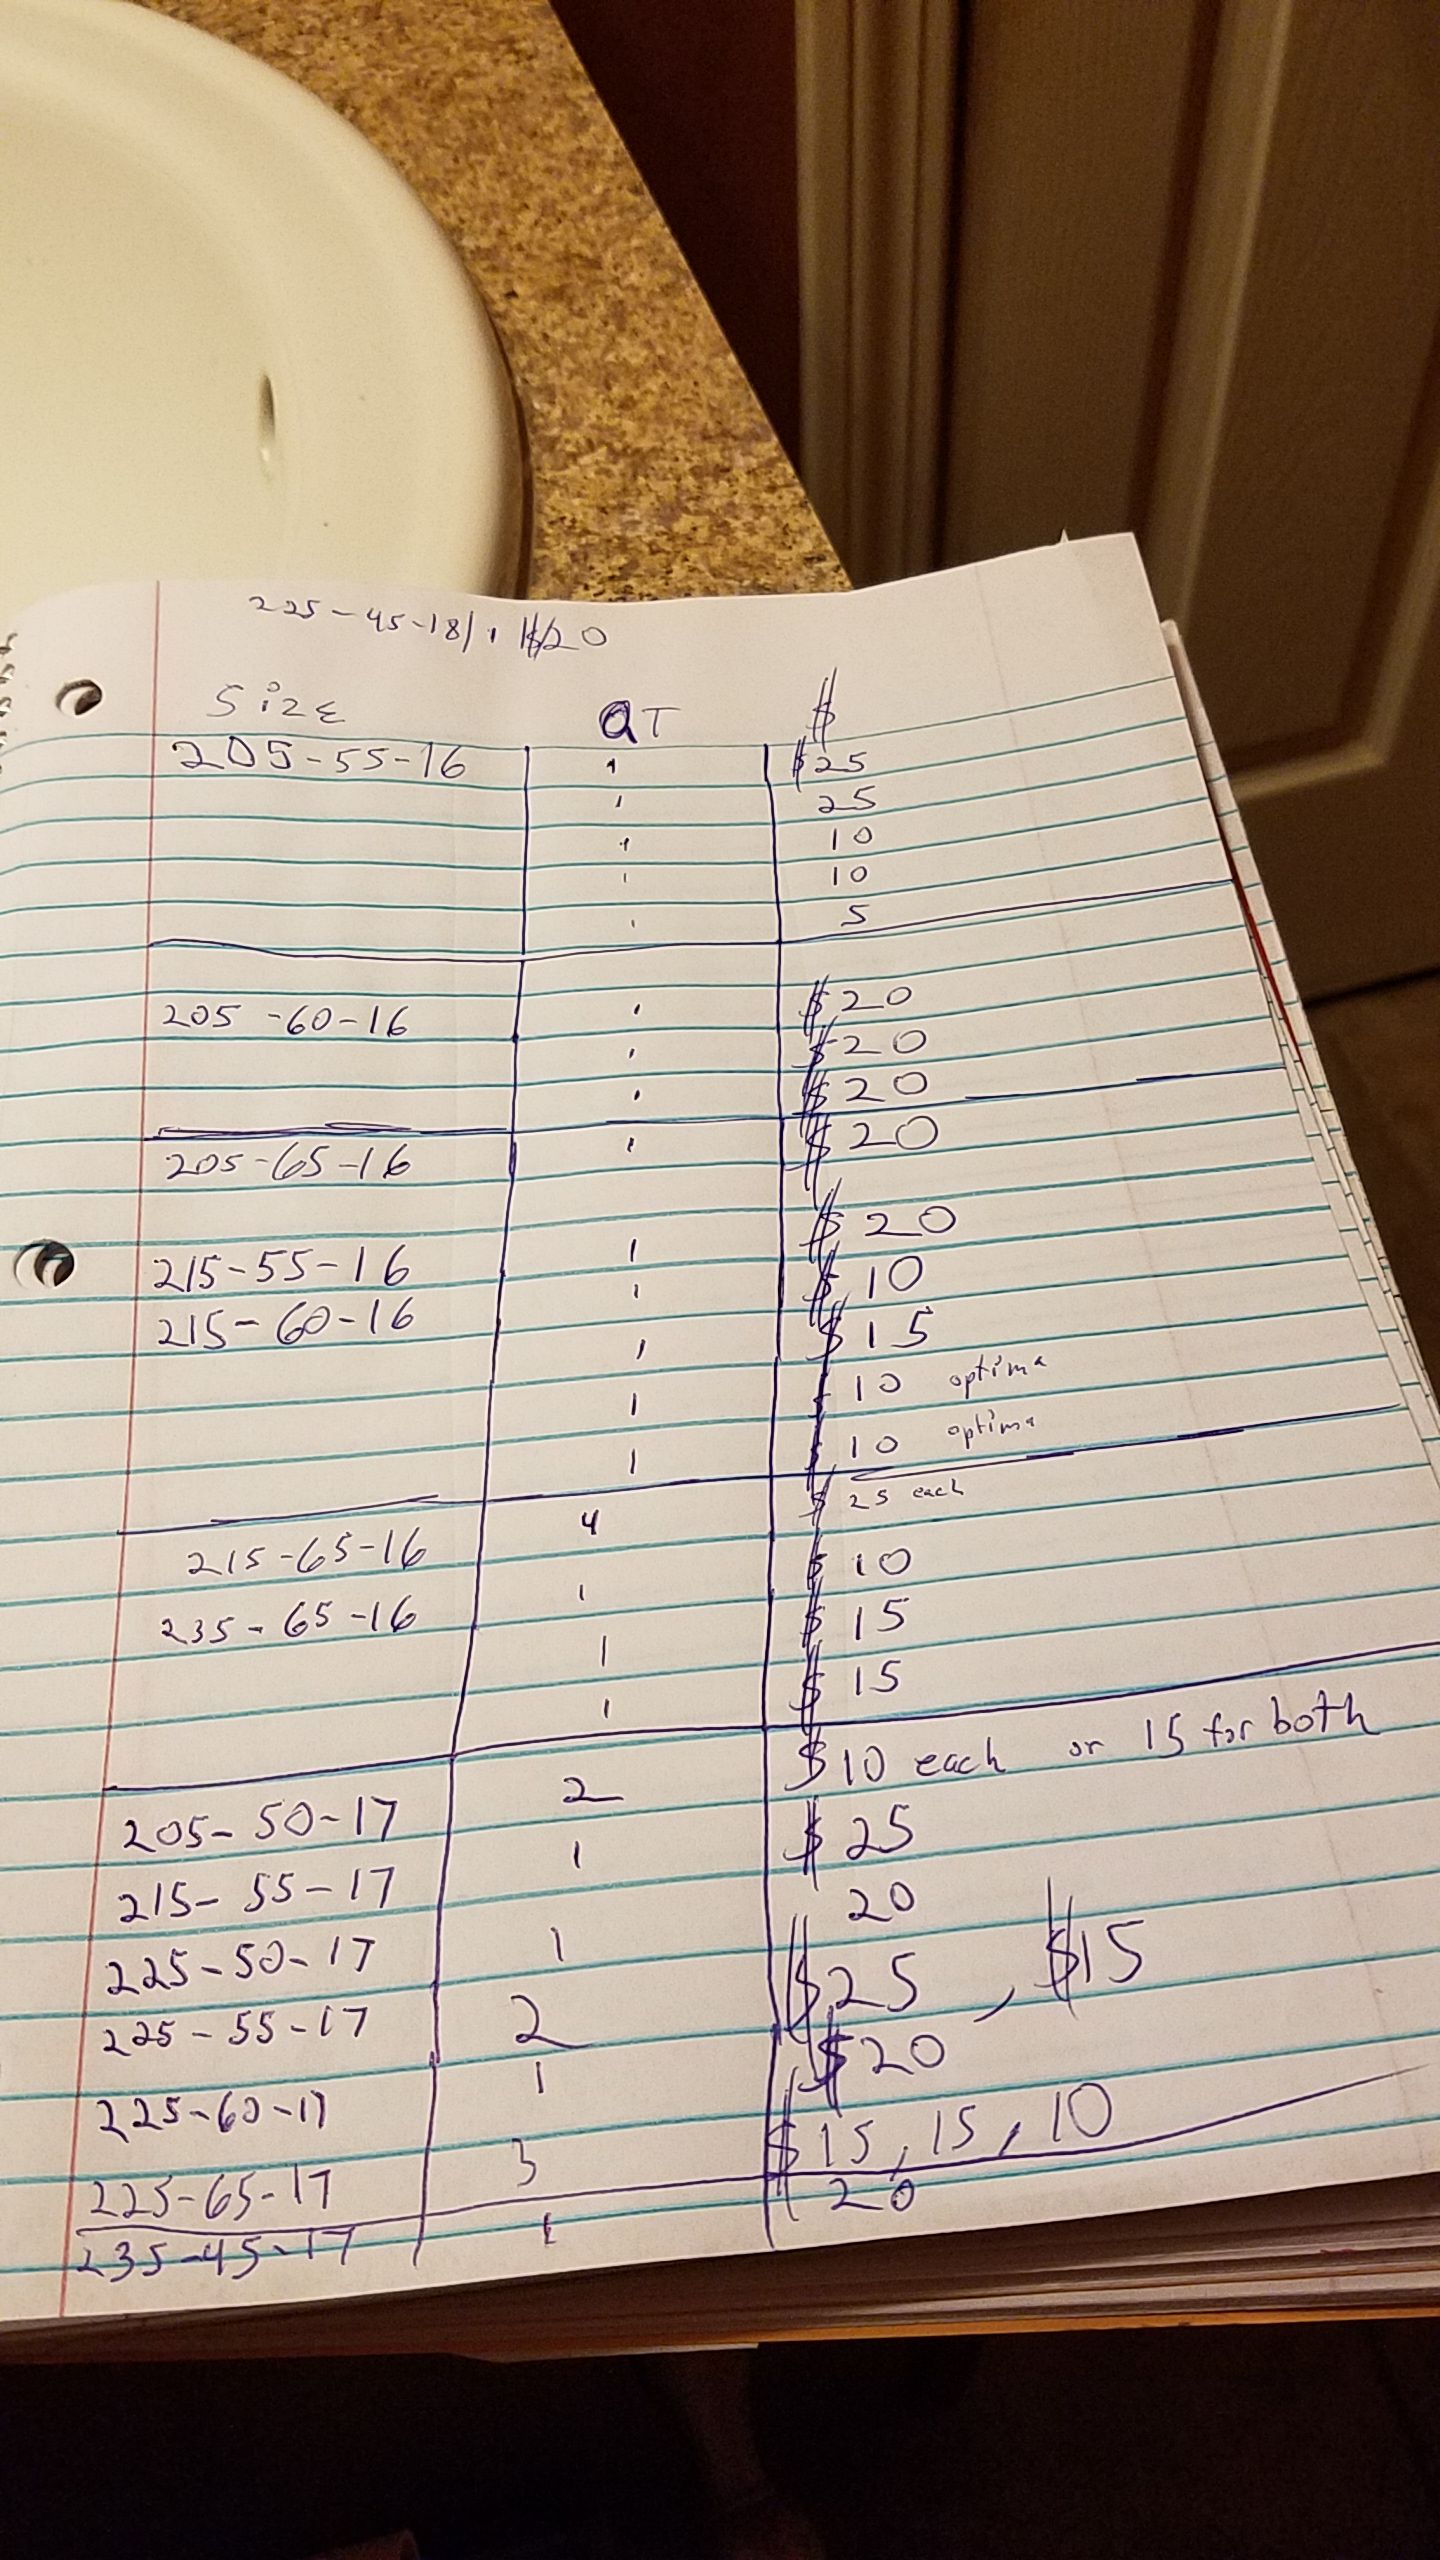 225-45-18 | 1 | $20
SIZE QT $
205-55-16 1 $25
1 25
1 10
1 10
1 5
205-60-16 1 $20
1 $20
1 $20
205-65-16 1 $20
215-55-16 1 $20
215-60-16 1 $10
1 $15
1 10 optima
1 $10 optima
215-65-16 4 $25 each
235-65-16 1 $10
1 $15
1 $15
205-50-17 2 $10 each or 15 for both
215-55-17 1 $25
225-50-17 1 20
225-55-17 2 $25, $15
225-60-17 1 $20
225-65-17 3 $15, 15, 10
235-45-17 1 20